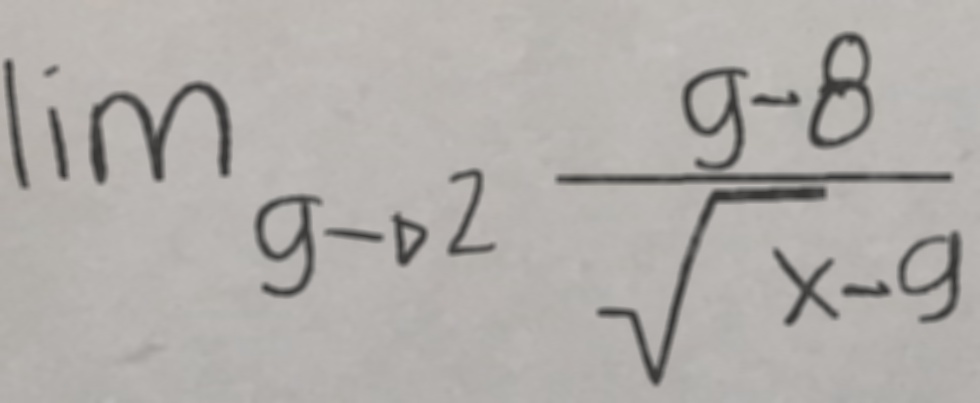 lim g→2 g-8
√x-g